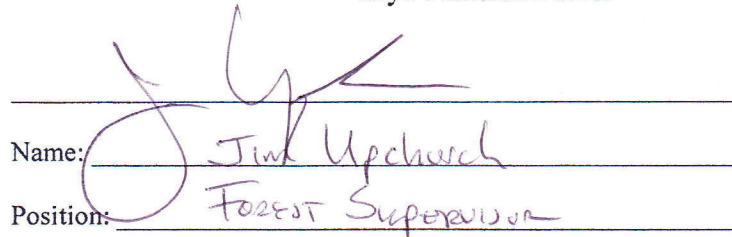 Name: Jim Upchurch
Position: Forest Supervisor